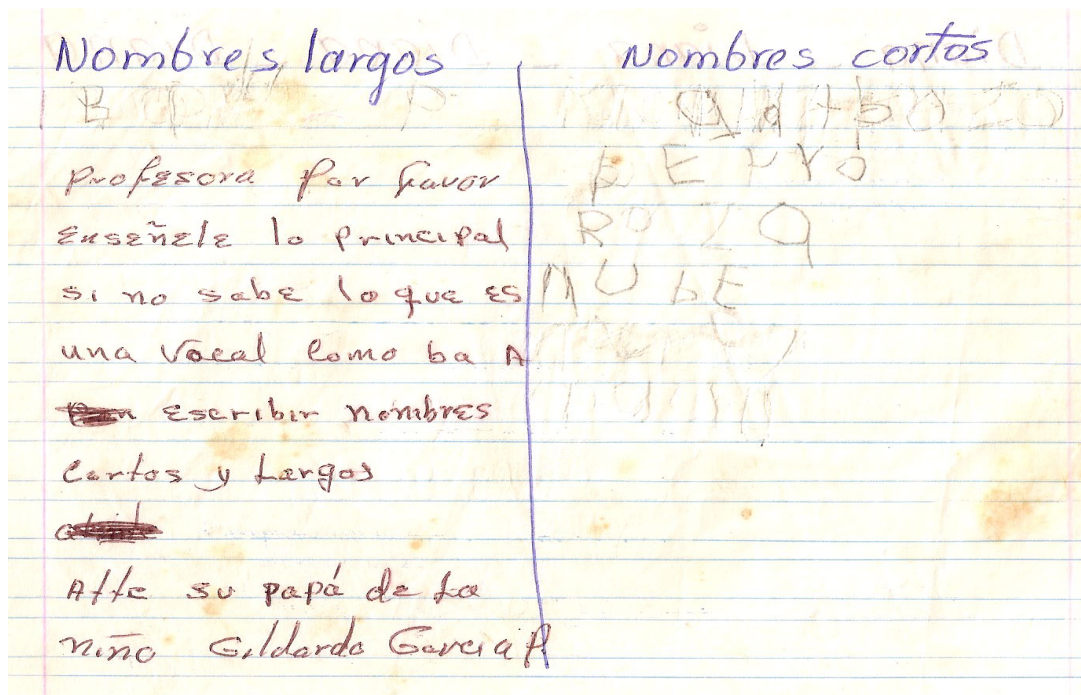 Nombres largos
Nombres cortos
profesora por favor
enseñele lo principal
si no sabe lo que es
una vocal como ba A
escribir nombres
cortos y largos
Atte su papá de la
niño Gildardo Garcia P.
pErro
Ro
NUbE